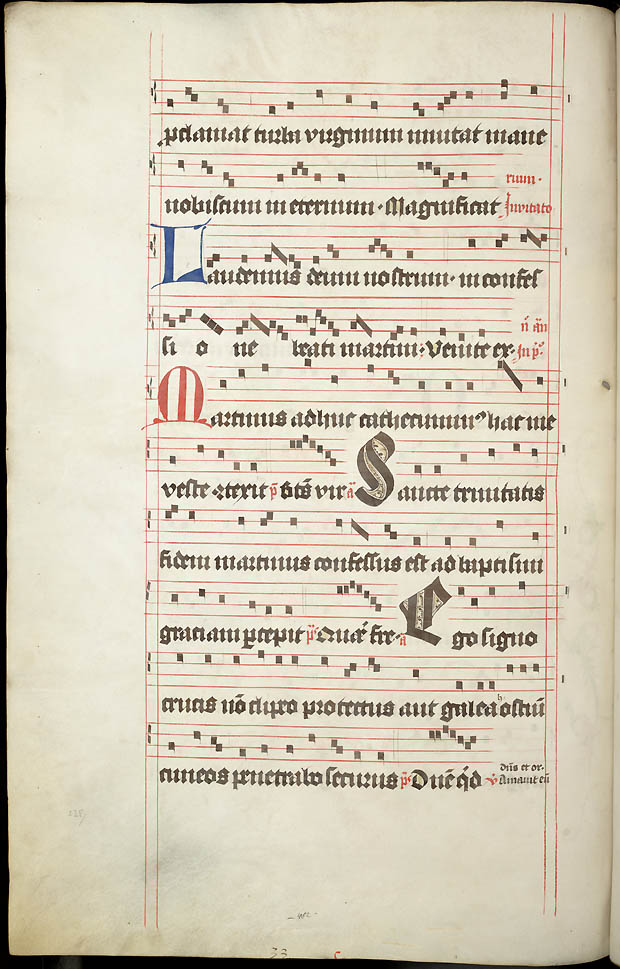 pclamat turba virginum inuitat mane
rium·
nobiscum in eternum· Magnificat Inuitato
Laudemus deum nostrum· in confes
n̄ an̄
si o ne beati martini· Venite ex· In p̊·
Martinus adhuc cathecuminꝰ hac me
veste ꝯtexit p̄ Bt̄s vir a Sancte trinitatis
fidem martinus confessus est ad baptismi
graciam percepit p̄s· Quare fre· a Ego signo
crucis nō clipeo protectus aut galea hostiū
dn̄s et or-
cuneos penetrabo securus p̄s Dn̄e qͥd ℣ Amauit eū
33